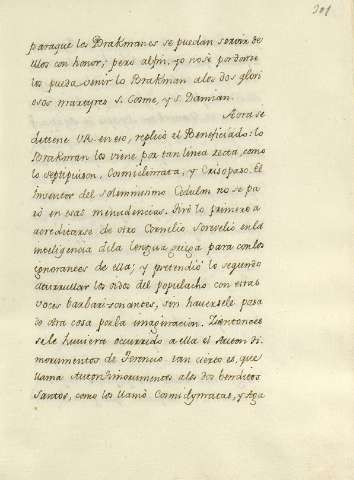 301
paraque los Brakmanes se puedan servir de
ellos con honor; pero alfin, yo no se por donde
les pueda venir lo Brakman a los dos glori
osos martyres S. Cosme, y S. Damian.
Aora se
detiene VR. en eso, replicó el Beneficiado: lo
Brakman les viene por tan linea recta, como
lo Septupuison, Cosmiclimata, y Crisopaso. El
Inventor del solemnisimo Cedulon no se pa
ró en esas menudencias. Tiró lo primero a
acreditarse de otro Cornelio Screvelio en la
inteligencia de la lengua griega para con los
ignorantes de ella; y pretendió lo segundo
aturrullar los oidos del populacho con estas
voces barbari-zonantes, sin haversele pasa
do otra cosa por la imaginacion. Si entonces
se le huviera ocurrido a ella el
morumentos de tan cierto es, que
llama a los dos benditos
Santos, como los llamó y Aga